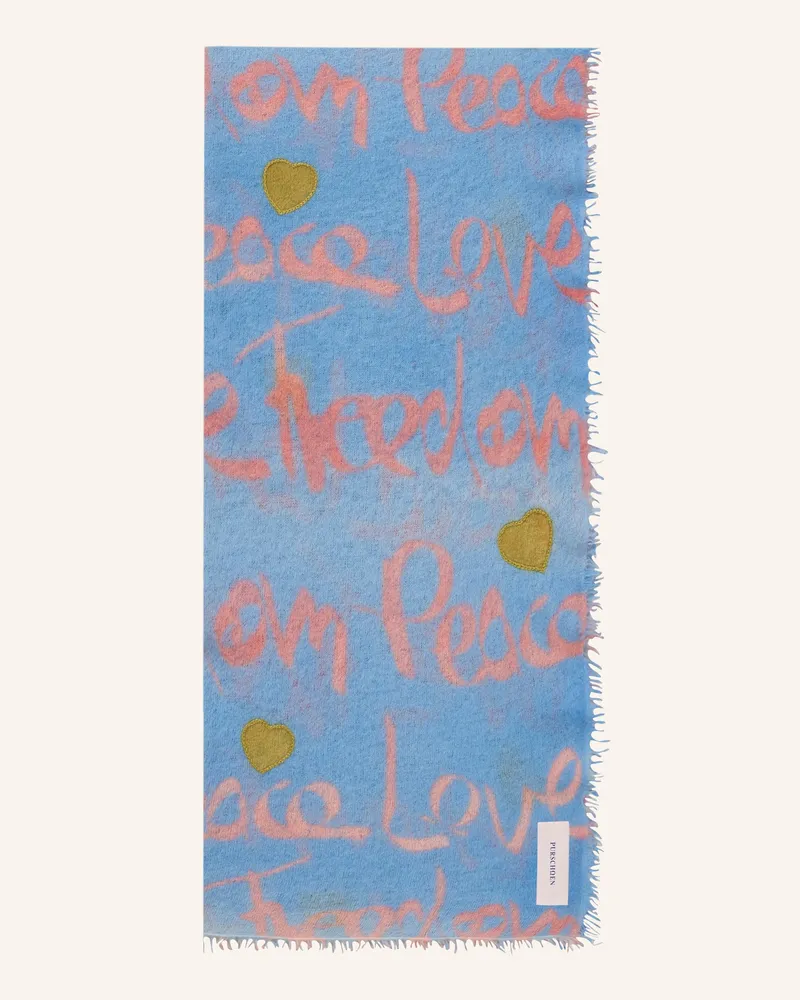 om Peace
eace Love
e Freedom
om Peace
eace Love
Freedom
PURSCHOEN